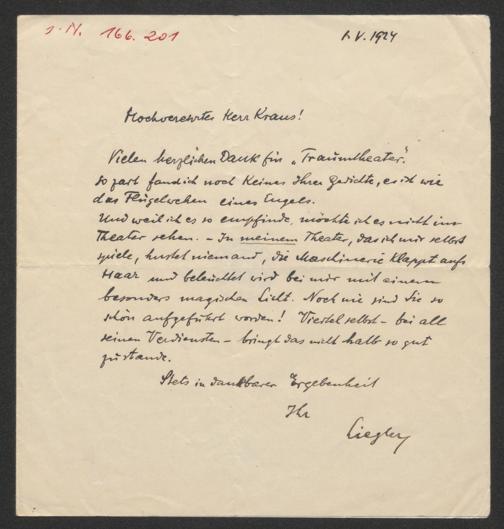 J.N. 166.201
1.V.1924
Hochverehrter Herr Kraus!
Vielen herzlichen Dank für „Traumtheater".
So zart fand ich noch keines Ihrer Gedichte, es ist wie
das Flügelwehen eines Engels.
Und weil ich es so empfinde, möchte ich es nicht im
Theater sehen. – In meinem Theater, das ich mir selbst
spiele, hustet niemand, die Maschinerie klappt aufs
Haar und beleuchtet wird bei mir mit einem
besonders magischen Licht. Noch nie sind Sie so
schön aufgeführt worden! Viertel selbst – bei all
seinen Verdiensten – bringt das nicht halb so gut
zustande.
Stets in dankbarer Ergebenheit
Ihr
Liegler